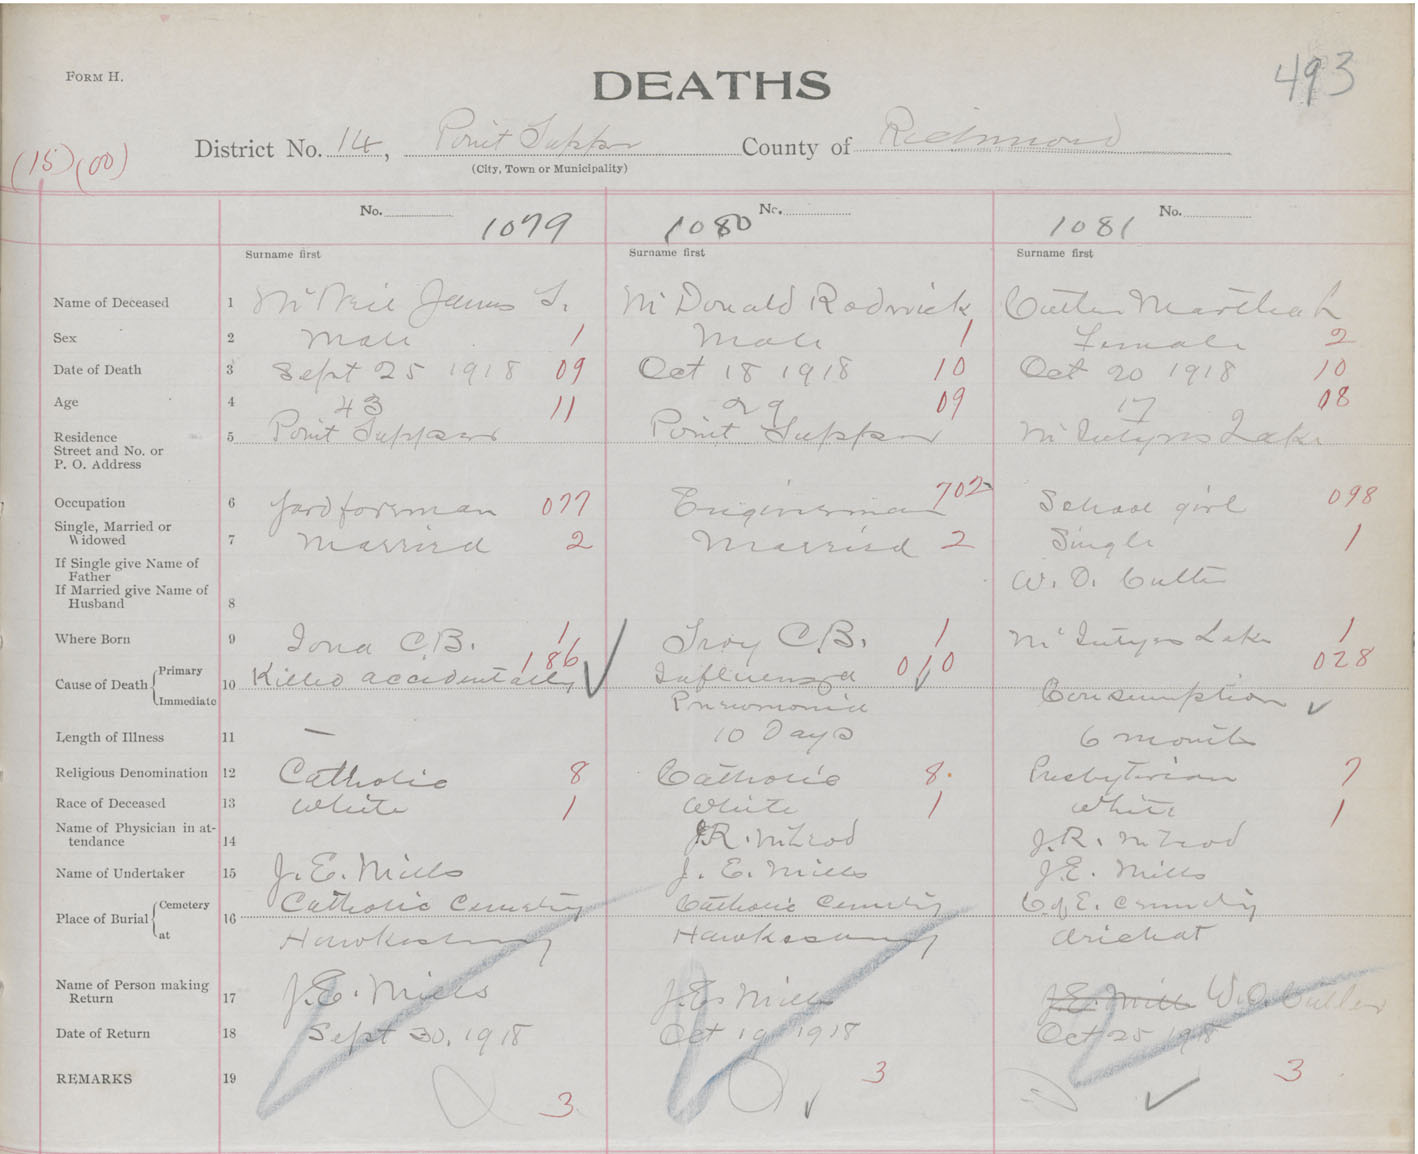 FORM H.
DEATHS
493
(15) (00)
District No. 14, Point Tupper County of Richmond
(City, Town or Municipality)
No. 1079 1080 No. 1081 No.
Surname first Surname first Surname first
Name of Deceased 1 McNeil James McDonald Rodrick Martha L
Sex 2 Male 1 Male 1 Female 2
Date of Death 3 Sept 25 1918 09 Oct 18 1918 10 Oct 20 1918 10
Age 4 43 11 29 09 17 08
Residence
Street and No. or
P. O. Address
5 Point Tupper Point Tupper McIntyres Lake
Occupation 6 Yard foreman 077 Engineman 702 School girl 098
Single, Married or
Widowed 7 Married 2 Married 2 Single 1
If Single give Name of
Father
If Married give Name of
Husband 8 W. D.
Where Born 9 Iona C.B. 1 Troy C.B. 1 McIntyres Lake 1
Cause of Death Primary 10 Killed accidentally 186 Influenza 010 028
Immediate Pneumonia Consumption
Length of Illness 11 — 10 Days 6 months
Religious Denomination 12 Catholic 8 Catholic 8. Presbyterian 7
Race of Deceased 13 White 1 White 1 White 1
Name of Physician in at-
tendance 14 J.R. McLeod J.R. McLeod
Name of Undertaker 15 J.E. Mills J.E. Mills J.E. Mills
Place of Burial Cemetery 16 Catholic Cemetery Catholic Cemetery C of E. Cemetery
at Hawkesbury Hawkesbury Arichat
Name of Person making
Return 17 J.E. Mills J.E. Mills J.E. Mills
Date of Return 18 Sept 30, 1918 Oct 19 1918 Oct 25 1918
REMARKS 19 3 3 3